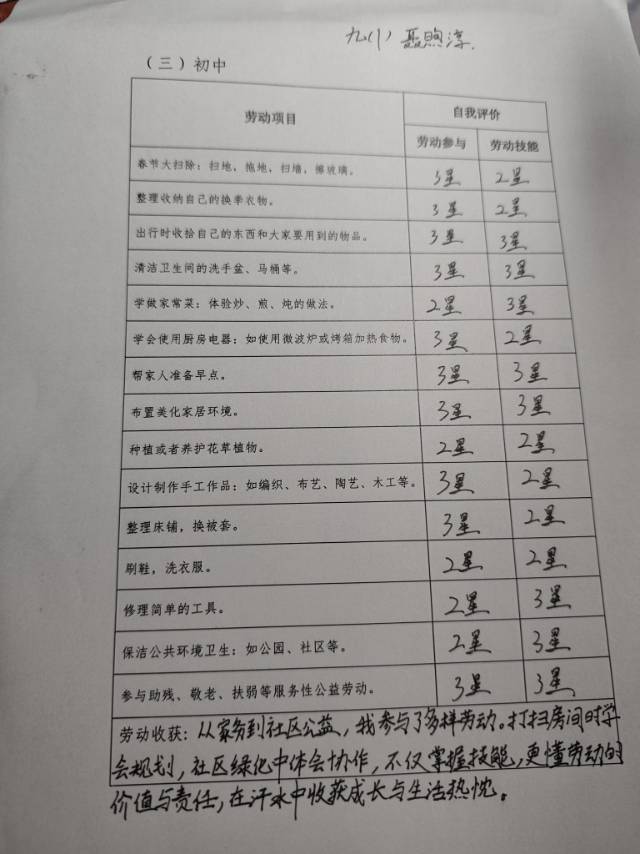 九(1) 聂煦淳.
(三)初中
劳动项目 自我评价
劳动参与 劳动技能
春节大扫除:扫地,拖地,扫墙,擦玻璃。 3星 2星
整理收纳自己的换季衣物。 3星 2星
出行时收拾自己的东西和大家要用到的物品。 3星 3星
清洁卫生间的洗手盆、马桶等。 3星 3星
学做家常菜:体验炒、煎、炖的做法。 2星 3星
学会使用厨房电器:如使用微波炉或烤箱加热食物。 3星 2星
帮家人准备早点。 3星 3星
布置美化家居环境。 3星 3星
种植或者养护花草植物。 2星 2星
设计制作手工作品:如编织、布艺、陶艺、木工等。 3星 2星
整理床铺,换被套。 3星 2星
刷鞋,洗衣服。 2星 2星
修理简单的工具。 2星 3星
保洁公共环境卫生:如公园、社区等。 2星 3星
参与助残、敬老、扶弱等服务性公益劳动。 3星 3星
劳动收获:从家务到社区公益,我参与了多样劳动。打扫房间时学
会规划,社区绿化中体会协作,不仅掌握技能,更懂劳动的
价值与责任,在汗水中收获成长与生活热忱。